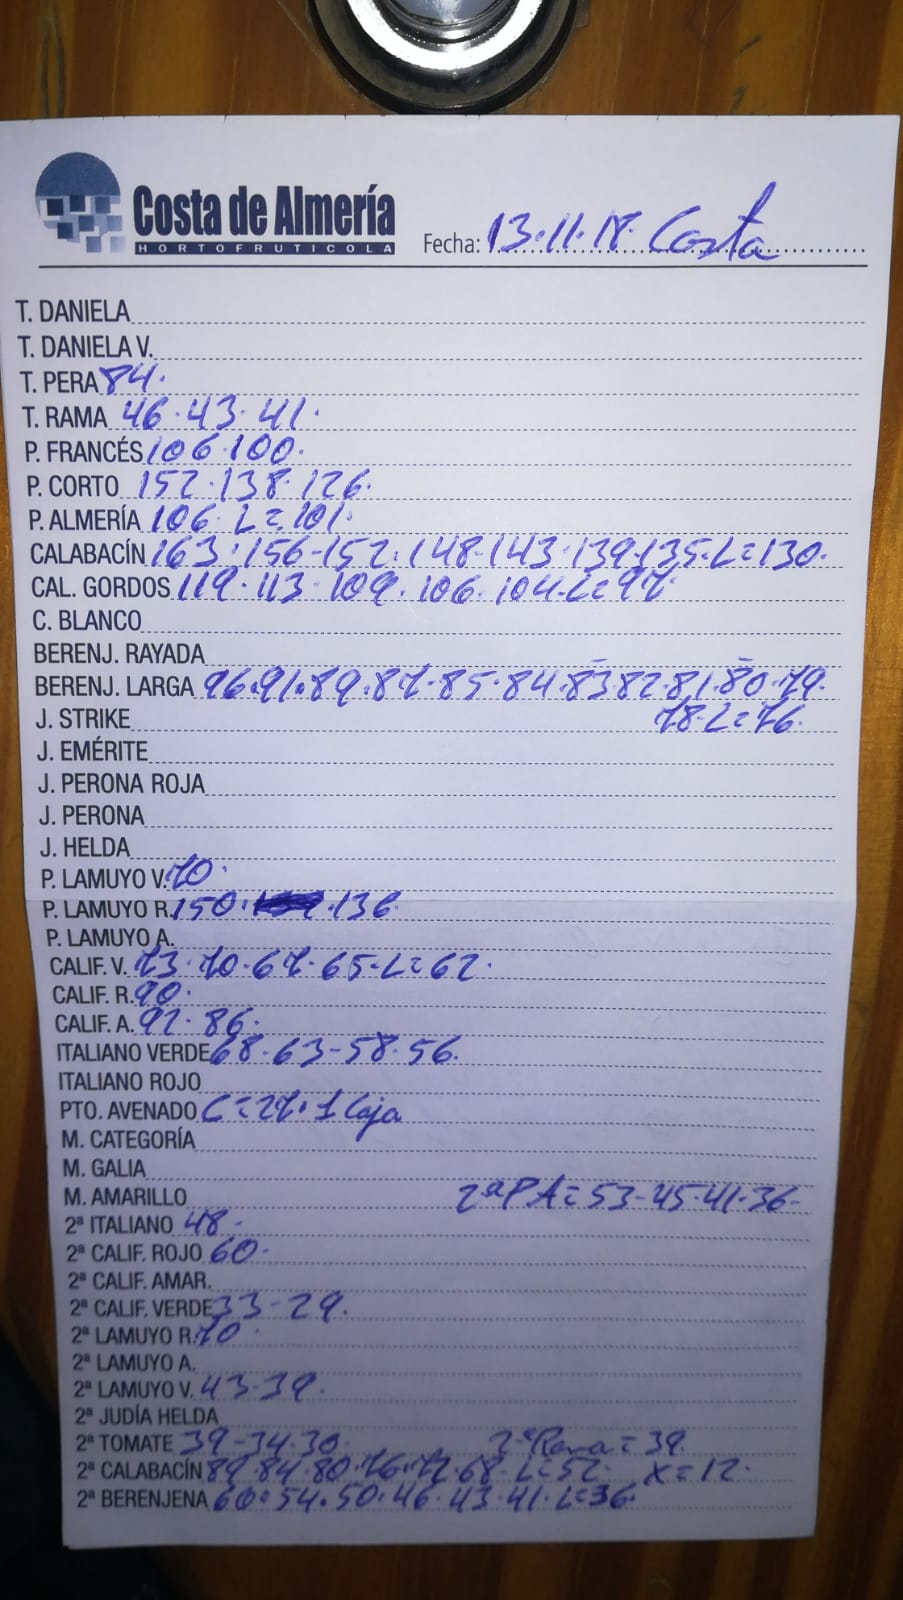 Costa de Almería
HORTOFRUTICOLA
Fecha: 13·11·18· Costa
T. DANIELA
T. DANIELA V.
T. PERA 84·
T. RAMA 46·43·41·
P. FRANCÉS 106·100·
P. CORTO 152·138·126·
P. ALMERÍA 106 L=101·
CALABACÍN 163·156-152·148-143·139·135·L=130·
CAL. GORDOS 119·113·109·106·104·L=97·
C. BLANCO
BERENJ. RAYADA
BERENJ. LARGA 96·91·89·87·85·84·83·82·81·80·79·
J. STRIKE 78·L=76
J. EMÉRITE
J. PERONA ROJA
J. PERONA
J. HELDA
P. LAMUYO V. 70·
P. LAMUYO R. 150· ·136
P. LAMUYO A.
CALIF. V. 73·70·67·65·L=62·
CALIF. R. 90·
CALIF. A. 92·86·
ITALIANO VERDE 68·63-58·56·
ITALIANO ROJO
PTO. AVENADO C=27·1 Caja
M. CATEGORÍA
M. GALIA
M. AMARILLO 2ªPA=53-45·41·36·
2ª ITALIANO 48·
2ª CALIF. ROJO 60·
2ª CALIF. AMAR.
2ª CALIF. VERDE 33-29·
2ª LAMUYO R. 70·
2ª LAMUYO A.
2ª LAMUYO V. 43·39·
2ª JUDÍA HELDA
2ª TOMATE 39-34·30· 2ªPera=39·
2ª CALABACÍN 89·84·80·76·72·68·L=52· X=12·
2ª BERENJENA 60·54·50·46·43·41·L=36·